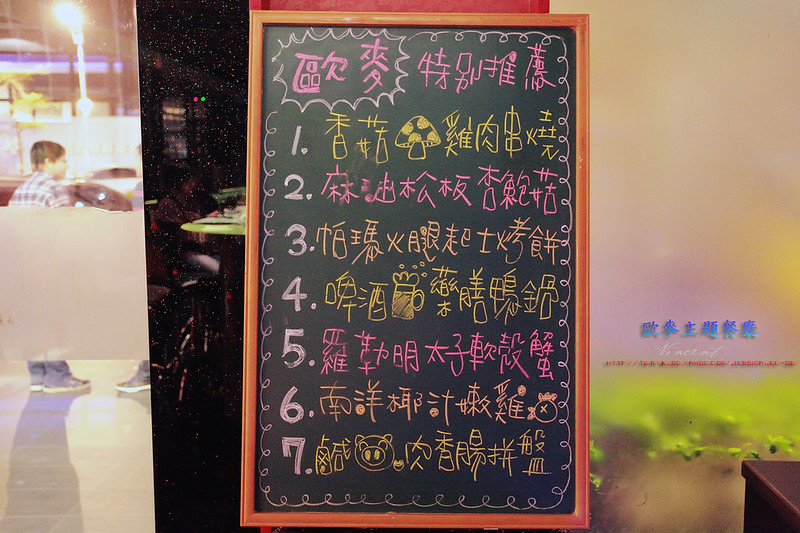 歐麥 特別推薦
1. 香菇雞肉串燒
2. 麻油松板杏鮑菇
3. 帕瑪火腿起士烤餅
4. 啤酒藥膳鴨鍋
5. 羅勒明太子軟殼蟹
6. 南洋椰汁嫩雞
7. 鹹肉香腸拼盤
歐麥主題餐廳
Vincent